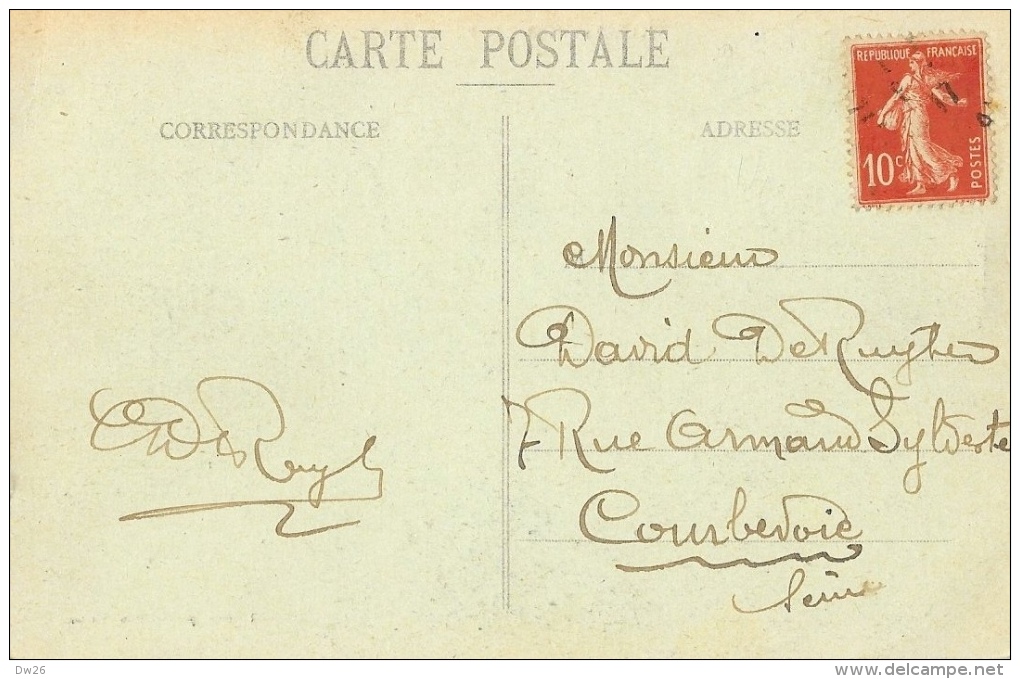 CARTE POSTALE
CORRESPONDANCE
ADRESSE
REPUBLIQUE FRANÇAISE
10c
POSTES
17
Monsieur
David De Ruyter
7 Rue Armand Sylvestre
Courbevoie
Seine
D De Ruyt
Dw26
www.delcampe.net